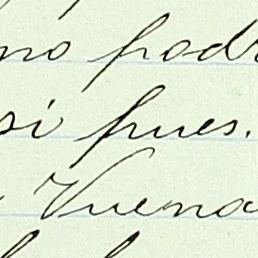 no podr
si pues.
Vuena